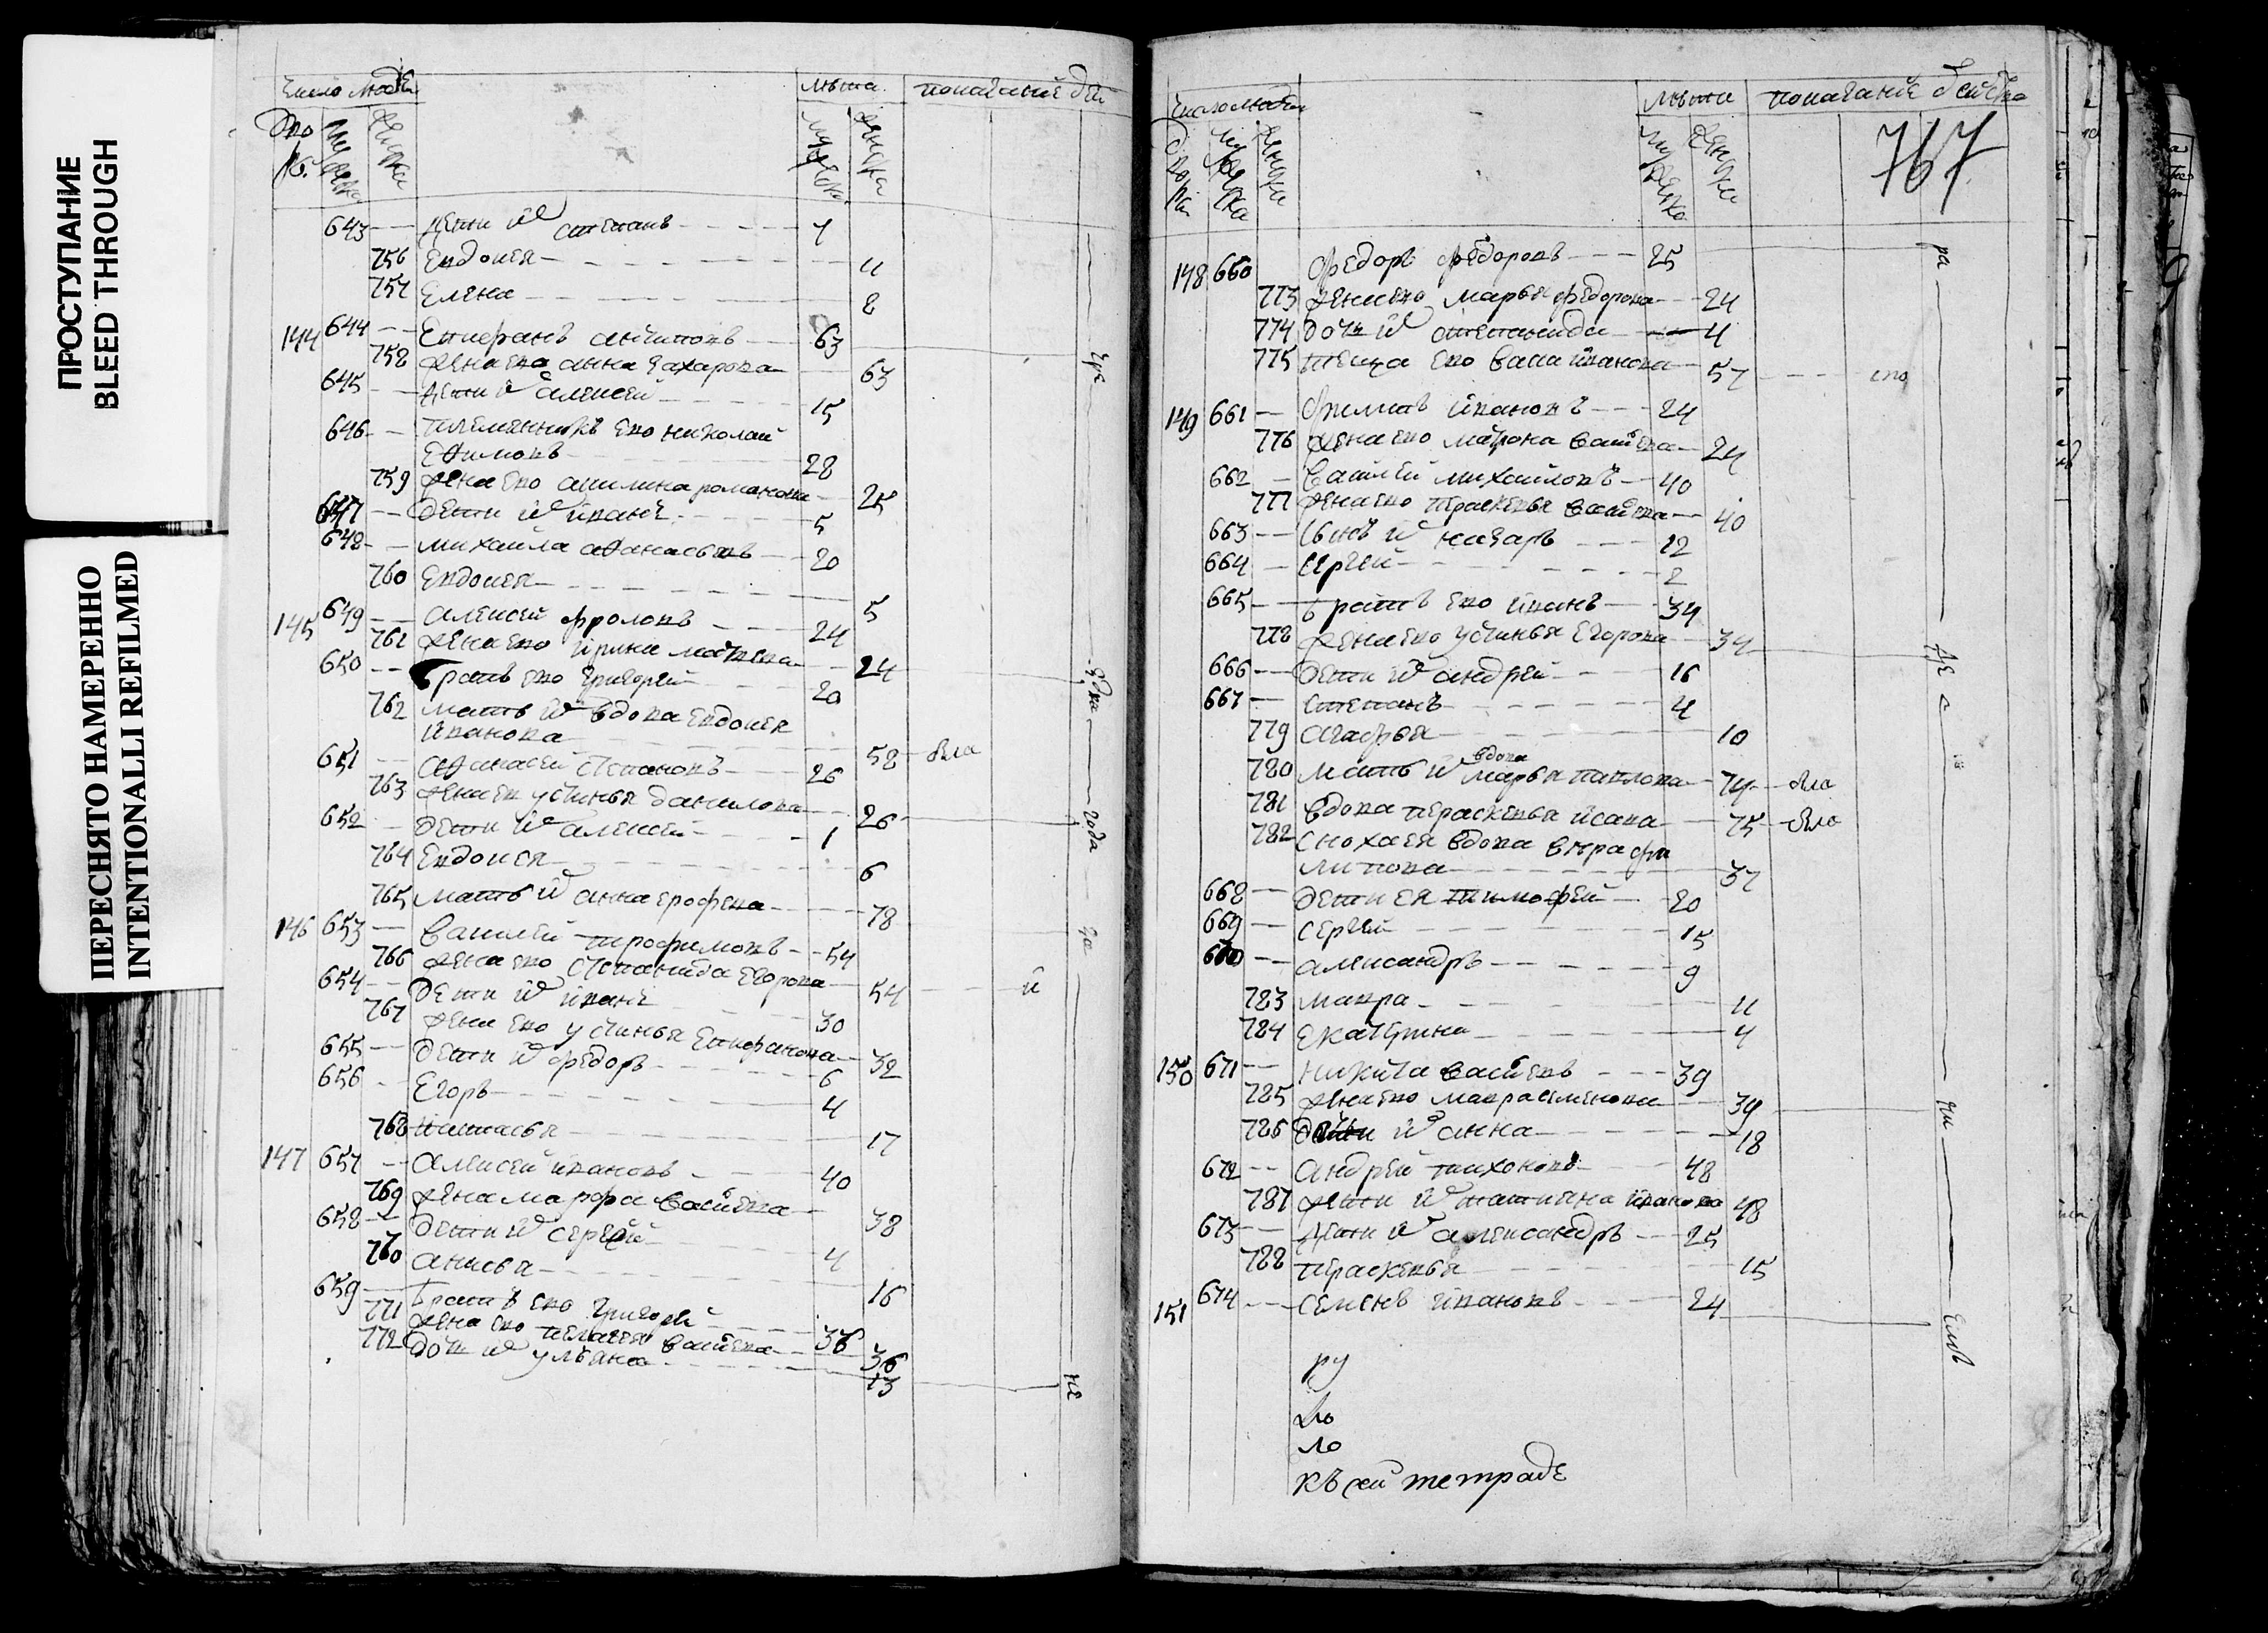 ПРОСТУПАНИЕ
BLEED THROUGH
ПЕРЕСНЯТО НАМЕРЕННО
INTENTIONALLI REFILMED
число людей лѣта показание дей
643 дети ихъ степанъ 7
756 Евдокея 11
757 Елена 8
144 644 Епифанъ антиповъ 63
758 жена ево анна захарова 63
645 дети ихъ алексей 15
646 племянникъ ево николай
Ефимовъ 28
759 жена ево акилина романова 25
647 дети ихъ иванъ 5
648 михайла афанасьевъ 20
760 Евдокея 5
145 649 алексей фроловъ 24
761 жена ево ирина матвеева 24
650 братъ ево григорей 20
762 мать ихъ вдова евдокея
иванова 58 была
651 афанасей степановъ 26
763 жена ев устинья данилова 26
652 дети ихъ алексей 1
764 Евдокея 6
765 мать ихъ анна ерофеева 78
146 653 василей трофимовъ 54
766 жена ево степанида егорова 54 и
654 дети ихъ иванъ 30
767 жена ево устинья епифанова 32
655 дети ихъ федоръ 6
656 Егоръ 4
768 настасья 17
147 657 алексей ивановъ 40
769 жена марфа васильева 38
658 дети ихъ сергей 4
770 анисья 16
659 братъ ево григорей 36
771 жена ево пелагея васильева 36
772 дочь ихъ ульяна 13
года
не
число людей лѣта показание действа
767
148 660 федоръ федоровъ 25
773 жена ево марья федорова 24
774 дочь ихъ степанида 4
775 теща ево васа иванова 57
149 661 филипъ ивановъ 24
776 жена ево матрона васильева 24
662 василей михайловъ 40
777 жена ево праскевья васильева 40
663 сынъ ихъ назаръ 12
664 сергей 2
665 братъ ево иванъ 34
778 жена ево устинья егорова 34
666 дети ихъ андрей 16
667 степанъ 4
779 агафья 10
780 мать ихъ вдова марья павлова 74 была
781 вдова праскевья исаева 75 была
782 сноха ея вдова
липова 37
668 дети ея тимофей 20
669 сергей 15
670 александръ 9
783 мавра 11
784 екатерина 4
150 671 никита васильевъ 39
785 жена ево мавра семенова 39
786 дети ихъ анна 18
672 андрей тихоновъ 48
787 жена ихъ татиана иванова 48
673 дети ихъ александръ 25
788 праскевья 15
151 674 семенъ ивановъ 24
ру
ло
къ сей тетраде